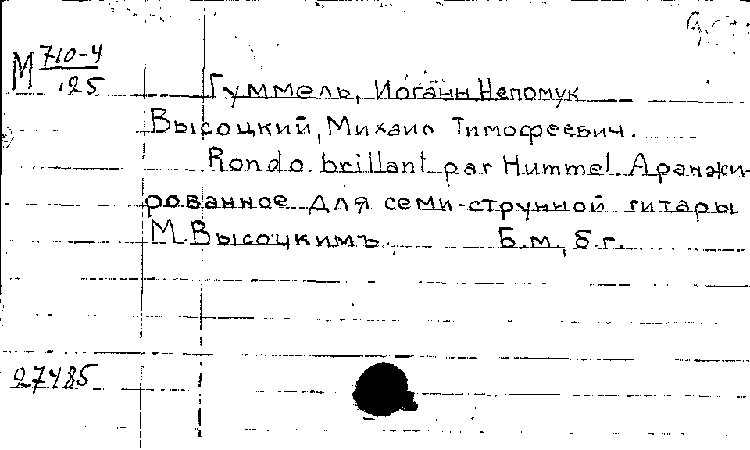 М 710-4
125
Гуммель, Иоганн Непомук
Высоцкий, Михаил Тимофеевич.
Rondo brillant par Hummel. Аранжи-
рованное для семи-струнной гитары
М. Высоцкимъ. Б.м., б.г.
27485